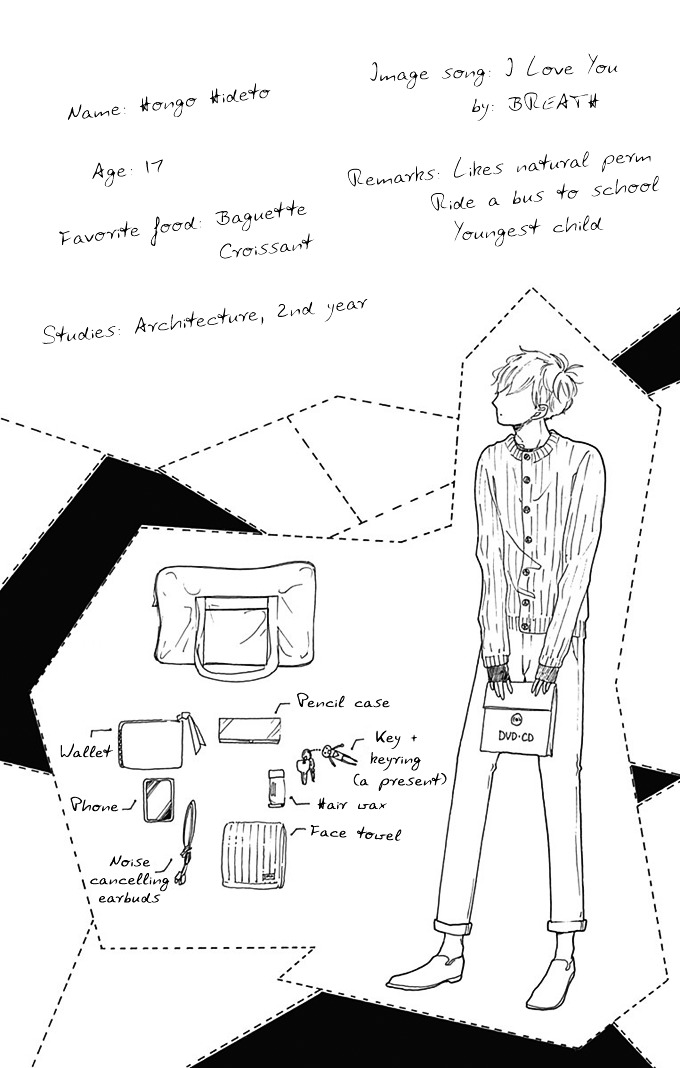 Name: Hongo Hideto
Age: 17
Favorite food: Baguette
Croissant
Studies: Architecture, 2nd year
Image song: I Love You
by: BREATH
Remarks: Likes natural perm
Ride a bus to school
Youngest child
Pencil case
Wallet
Key +
keyring
(a present)
Phone
Hair wax
Face towel
Noise
cancelling
earbuds
DVD・CD